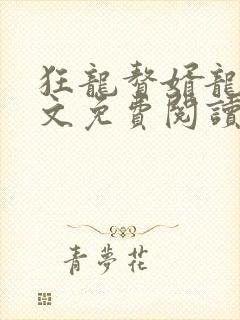 狂龍贅婿龍
文免費閱讀
青夢花